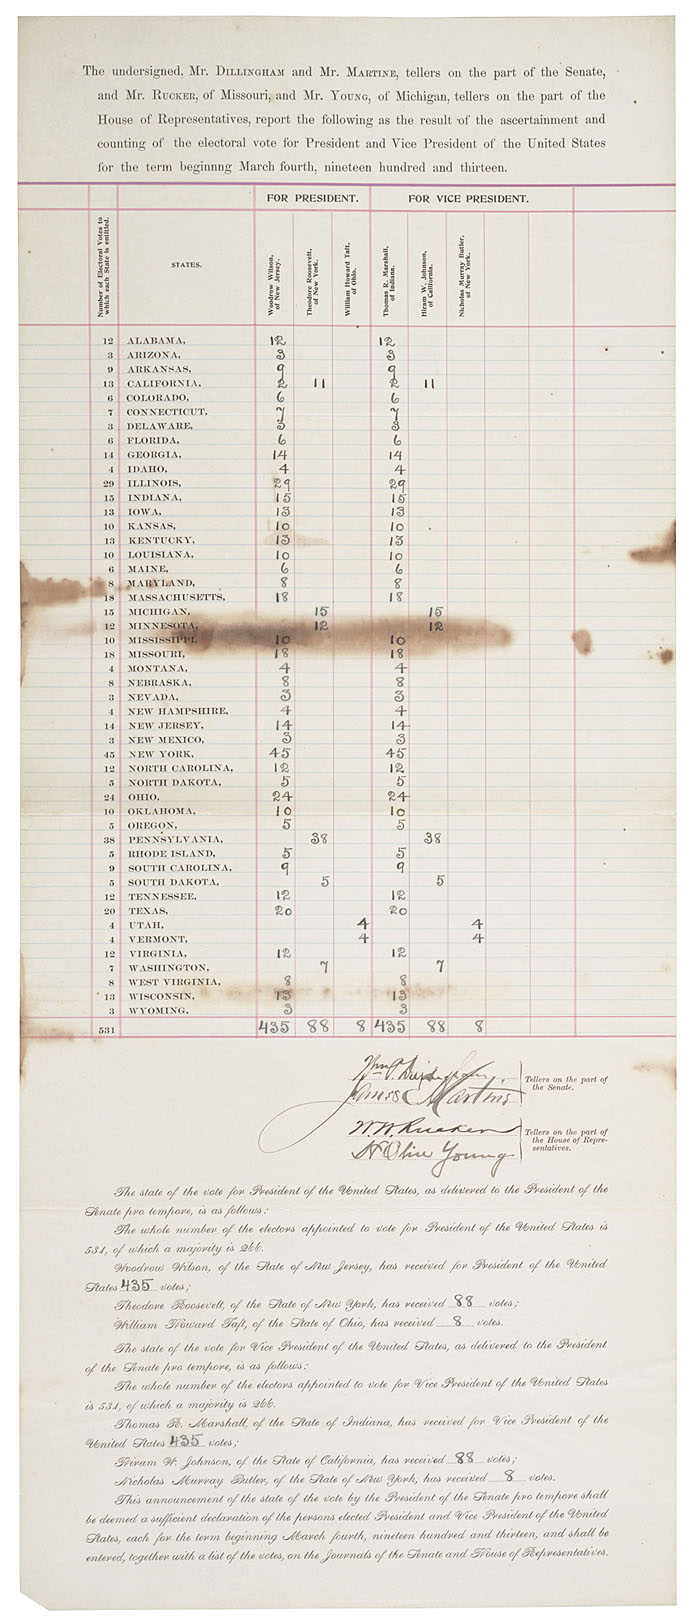 The undersigned, Mr. Dillingham and Mr. Martine, tellers on the part of the Senate,
and Mr. Rucker, of Missouri, and Mr. Young, of Michigan, tellers on the part of the
House of Representatives, report the following as the result of the ascertainment and
counting of the electoral vote for President and Vice President of the United States
for the term beginnng March fourth, nineteen hundred and thirteen.
FOR PRESIDENT. FOR VICE PRESIDENT.
Number of Electoral Votes to which each State is entitled.
STATES.
Woodrow Wilson, of New Jersey.
Theodore Roosevelt, of New York.
William Howard Taft, of Ohio.
Thomas R. Marshall, of Indiana.
Hiram W. Johnson, of California.
Nicholas Murray Butler, of New York.
12 ALABAMA, 12 12
3 ARIZONA, 3 3
9 ARKANSAS, 9 9
13 CALIFORNIA, 2 11 2 11
6 COLORADO, 6 6
7 CONNECTICUT, 7 7
3 DELAWARE, 3 3
6 FLORIDA, 6 6
14 GEORGIA, 14 14
4 IDAHO, 4 4
29 ILLINOIS, 29 29
15 INDIANA, 15 15
13 IOWA, 13 13
10 KANSAS, 10 10
13 KENTUCKY, 13 13
10 LOUISIANA, 10 10
6 MAINE, 6 6
8 MARYLAND, 8 8
18 MASSACHUSETTS, 18 18
15 MICHIGAN, 15 15
12 MINNESOTA, 12 12
10 MISSISSIPPI, 10 10
18 MISSOURI, 18 18
4 MONTANA, 4 4
8 NEBRASKA, 8 8
3 NEVADA, 3 3
4 NEW HAMPSHIRE, 4 4
14 NEW JERSEY, 14 14
3 NEW MEXICO, 3 3
45 NEW YORK, 45 45
12 NORTH CAROLINA, 12 12
5 NORTH DAKOTA, 5 5
24 OHIO, 24 24
10 OKLAHOMA, 10 10
5 OREGON, 5 5
38 PENNSYLVANIA, 38 38
5 RHODE ISLAND, 5 5
9 SOUTH CAROLINA, 9 9
5 SOUTH DAKOTA, 5 5
12 TENNESSEE, 12 12
20 TEXAS, 20 20
4 UTAH, 4 4
4 VERMONT, 4 4
12 VIRGINIA, 12 12
7 WASHINGTON, 7 7
8 WEST VIRGINIA, 8 8
13 WISCONSIN, 13 13
3 WYOMING, 3 3
531 435 88 8 435 88 8
Wm P. Dillingham
James E Martine
Tellers on the part of
the Senate.
W. W. Rucker
H Olin Young
Tellers on the part of
the House of Repre-
sentatives.
The state of the vote for President of the United States, as delivered to the President of the
Senate pro tempore, is as follows:
The whole number of the electors appointed to vote for President of the United States is
531, of which a majority is 266.
Woodrow Wilson, of the State of New Jersey, has received for President of the United
States 435 votes;
Theodore Roosevelt, of the State of New York, has received 88 votes;
William Howard Taft, of the State of Ohio, has received 8 votes.
The state of the vote for Vice President of the United States, as delivered to the President
of the Senate pro tempore, is as follows:
The whole number of the electors appointed to vote for Vice President of the United States
is 531, of which a majority is 266.
Thomas R. Marshall, of the State of Indiana, has received for Vice President of the
United States 435 votes;
Hiram W. Johnson, of the State of California, has received 88 votes;
Nicholas Murray Butler, of the State of New York, has received 8 votes.
This announcement of the state of the vote by the President of the Senate pro tempore shall
be deemed a sufficient declaration of the persons elected President and Vice President of the United
States, each for the term beginning March fourth, nineteen hundred and thirteen, and shall be
entered, together with a list of the votes, on the Journals of the Senate and House of Representatives.